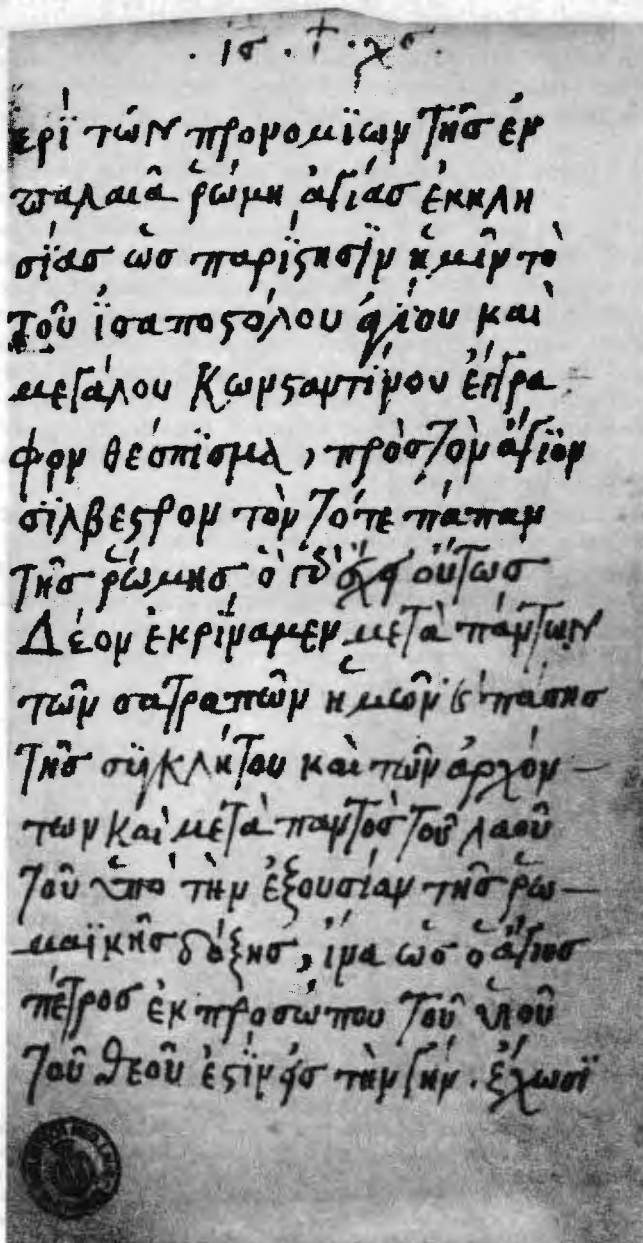 · ἰσ · + · χσ ·
ερὶ τῶν προνομίων τῆσ ἐν
παλαιᾶ ῥώμη ἁγίασ ἐκκλη
σίασ ὡσ παρίστησϊν ἡμῖν τὸ
τοῦ ἰσαποστόλου ἁγίου καὶ
μεγάλου Κωνσταντίνου ἔγγρα
φον θέσπϊσμα, πρὸσ τὸν ἅγϊον
σίλβεστρον τὸν τότε πάπαν
τῆσ ῥώμησ οὕτωσ
Δέον ἐκρίναμεν μετὰ πάντων
τῶν σατραπῶν ἡμῶν κ πάσησ
τῆσ συγκλήτου καὶ τῶν ἀρχόν –
των καὶ μετὰ παντὸσ τοῦ λαοῦ
τοῦ ὑπὸ τὴν ἐξουσίαν τῆσ ῥω –
μαϊκῆσ δόξησ, ἵνα ὡσ ὁ ἅγιοσ
πέτροσ ἐκ προσώπου τοῦ υἱοῦ
τοῦ θεοῦ ἐστὶν τὴν γῆν. ἔχωσϊ